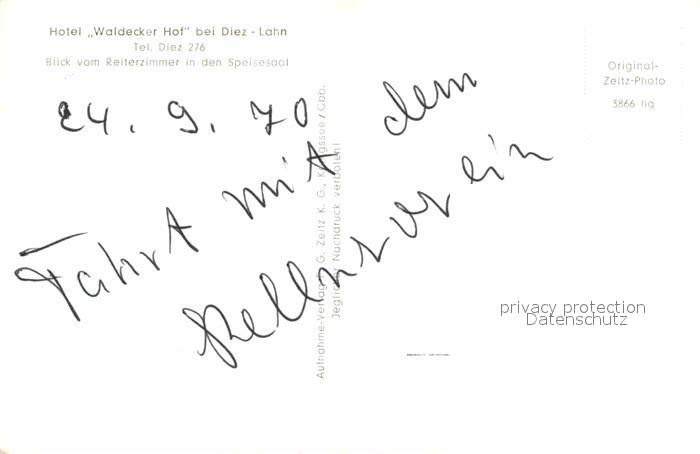 Hotel „Waldecker Hof" bei Diez - Lahn
Tel. Diez 276
Blick vom Reiterzimmer in den Speisesaal
Original-
Zeitz-Photo
3866 hg
24. 9. 70
Fahrt mit dem
Aufnahme-Verlag G. Zeitz K. G., Königssee / Obb.
Jeglicher Nachdruck verboten!
privacy protection
Datenschutz